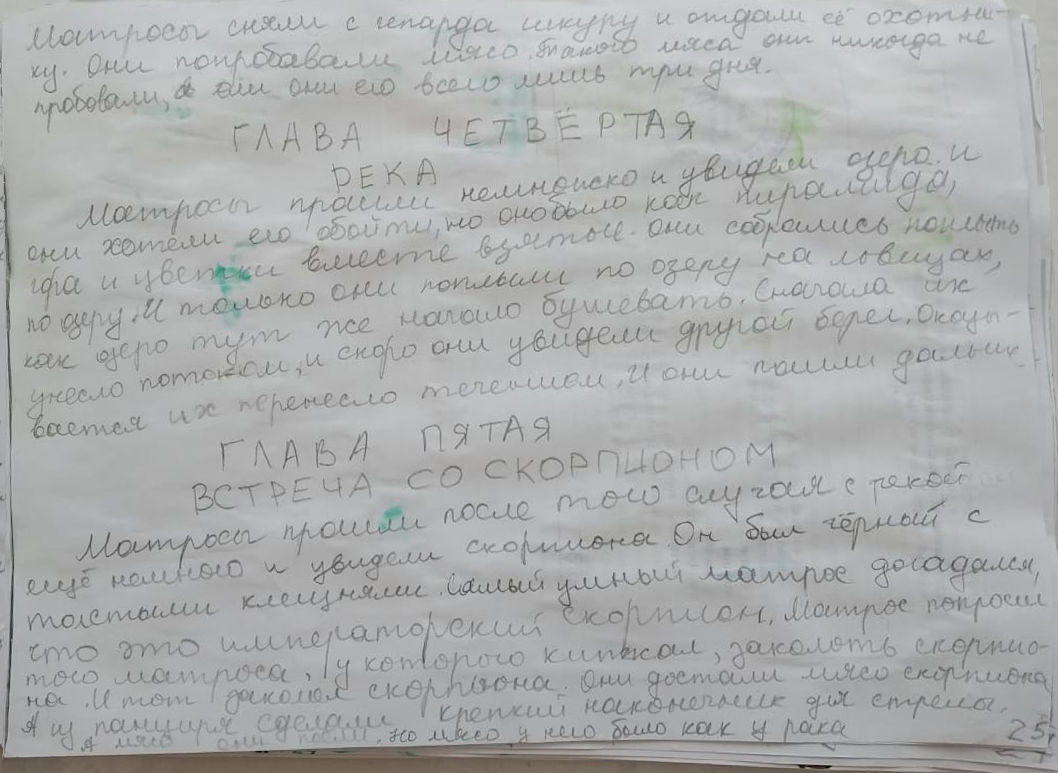 Матросы сняли с гепарда шкуру и отдали её охотни-
ку. Они попробавали мясо. Такого мяса они никогда не
пробовали, а ели они его всего лишь три дня.
ГЛАВА ЧЕТВЁРТАЯ
РЕКА
Матросы прошли немношко и увидели озеро. И
они хотели его обойти, но оно было как пирамида,
и цветки вместе взятые. Они собрались поплыть
по озеру. И только они поплыли по озеру на
как озеро тут же начало бушевать. Сначала их
унесло потоком, и скоро они увидели другой берег. Оказы-
вается их перенесло течением, И они пошли дальше
ГЛАВА ПЯТАЯ
ВСТРЕЧА СО СКОРПИОНОМ
Матросы прошли после того случая с рекой
ещё немного и увидели скорпиона. Он был чёрный с
толстыми клещнями. Самый умный матрос догадался,
что это императорский скорпион. Матрос попросил
того матроса, у которого кинжал, заколоть скорпио-
на. И тот заколол скорпиона. Они достали мясо скорпиона
А из панциря сделали крепкий наконечник для стрелы.
А мясо они поели. Но мясо у него было как у рака
25